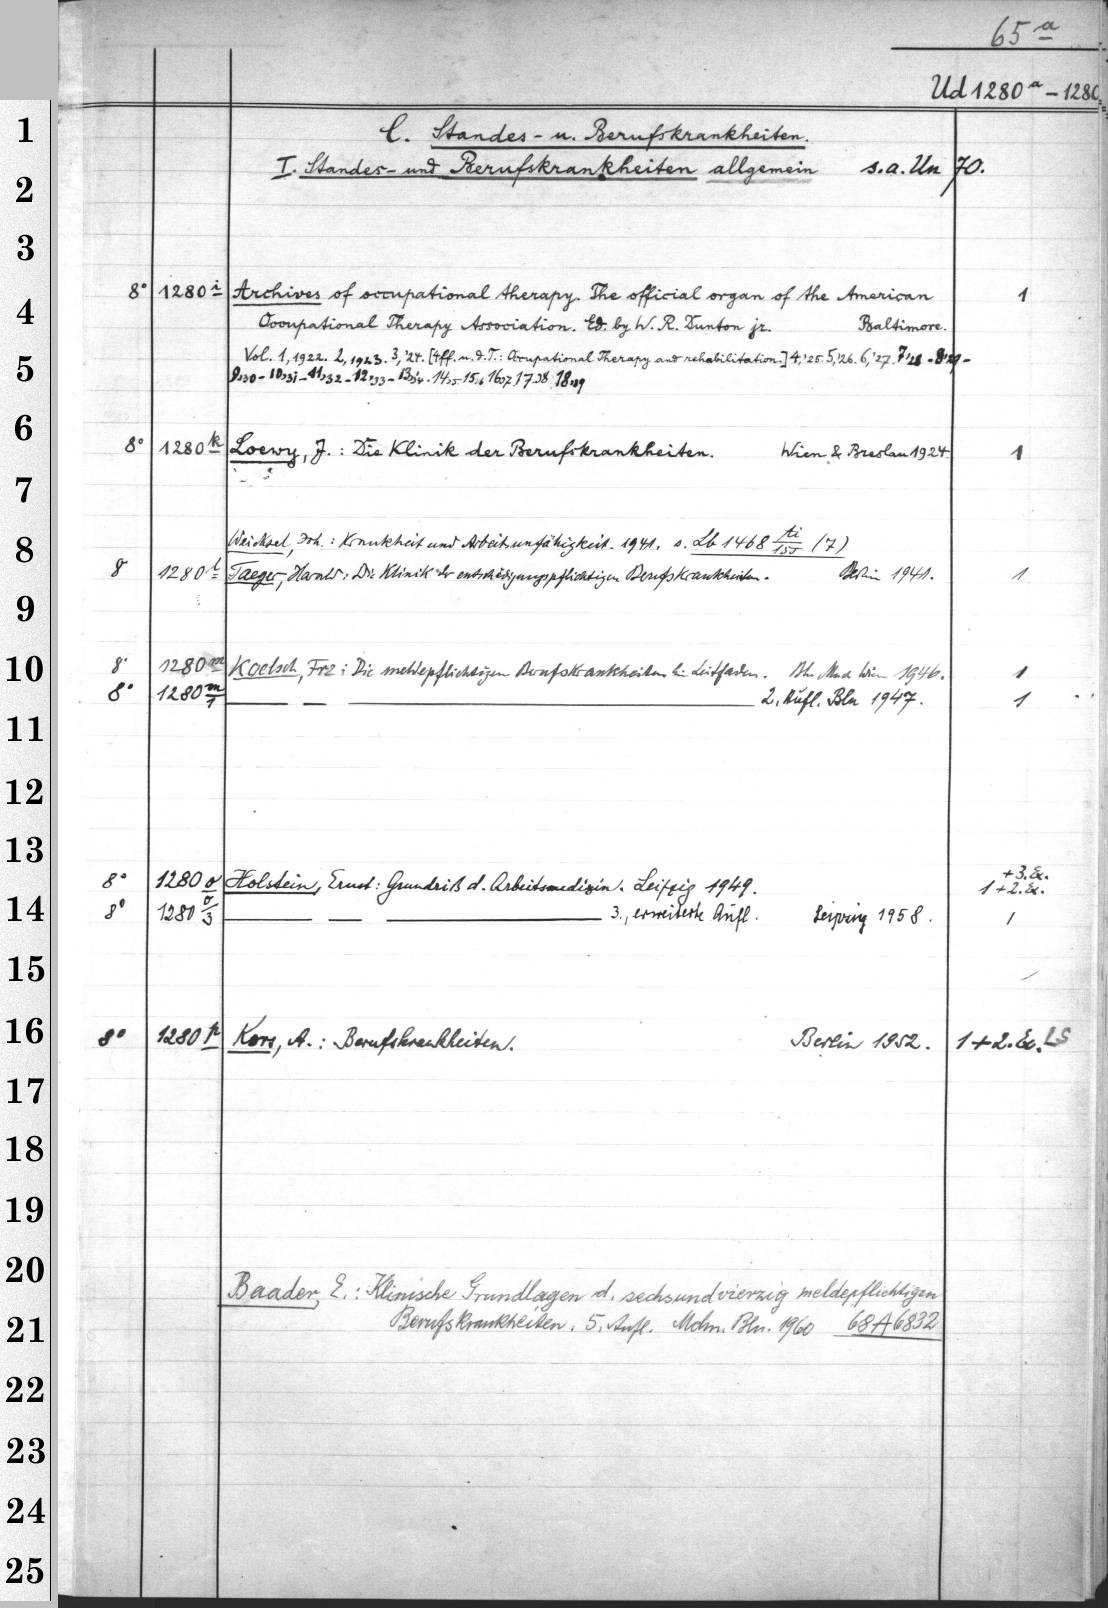 65 a
Ud 1280 a - 1280
C. Standes- u. Berufskrankheiten.
I. Standes- und Berufskrankheiten allgemein s. a. Un 70.
8° 1280 i Archives of occupational therapy. The official organ of the American 1
Occupational Therapy Association. Ed. by W. R. Dunton jr. Baltimore.
Vol. 1, 1922. 2, 1923. 3, '24. [4ff. u. d. T.: Occupational Therapy and rehabilitation.] 4, '25. 5, '26. 6, '27. 7, '28 - 8, '29 -
9,30 - 10,31 - 11,32 - 12,33 - 13,34. 14,35 15,36 16,37 17,38 18,39
8° 1280 k Loewy, J.: Die Klinik der Berufskrankheiten. Wien & Breslau 1924 1
Weichsel, Joh.: Krankheit und Arbeitsunfähigkeit. 1941. s. Lb 1468 ti/155 (7)
8° 1280 l Taeger, Harald: Die Klinik der entschädigungspflichtigen Berufskrankheiten. Berlin 1941. 1
8° 1280 m Koelsch, Frz: Die meldepflichtigen Berufskrankheiten Ein Leitfaden. Bln Mch Wien 1946. 1
8° 1280 m/1 2. Aufl. Bln 1947. 1
+3.Ex.
8° 1280 o Holstein, Ernst: Grundriß d. Arbeitsmedizin. Leipzig 1949. 1+2.Ex.
8° 1280 o/3 3., erweiterte Aufl. Leipzig 1958. 1
8° 1280 p Kors, A.: Berufskrankheiten. Berlin 1952. 1+2.Ex. LS
Baader, E.: Klinische Grundlagen d. sechsundvierzig meldepflichtigen
Berufskrankheiten. 5. Aufl. Mchn. Bln. 1960 68 A 6832
1
2
3
4
5
6
7
8
9
10
11
12
13
14
15
16
17
18
19
20
21
22
23
24
25